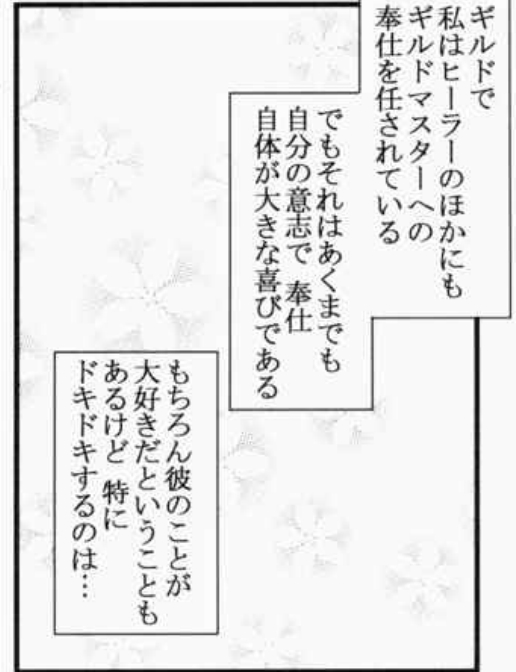 ギルドで
私はヒーラーのほかにも
ギルドマスターへの
奉仕を任されている
でもそれはあくまでも
自分の意志で 奉仕
自体が大きな喜びである
もちろん彼のことが
大好きだということも
あるけど 特に
ドキドキするのは…